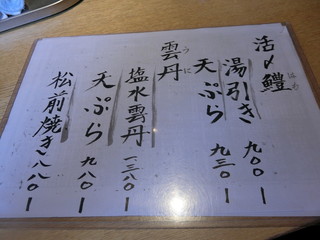 活〆鱧 はも
湯引き 九〇〇ー
天ぷら 九三〇ー
雲丹 うに
塩水雲丹 一三八〇ー
天ぷら 九八〇ー
松前焼き 八八〇ー